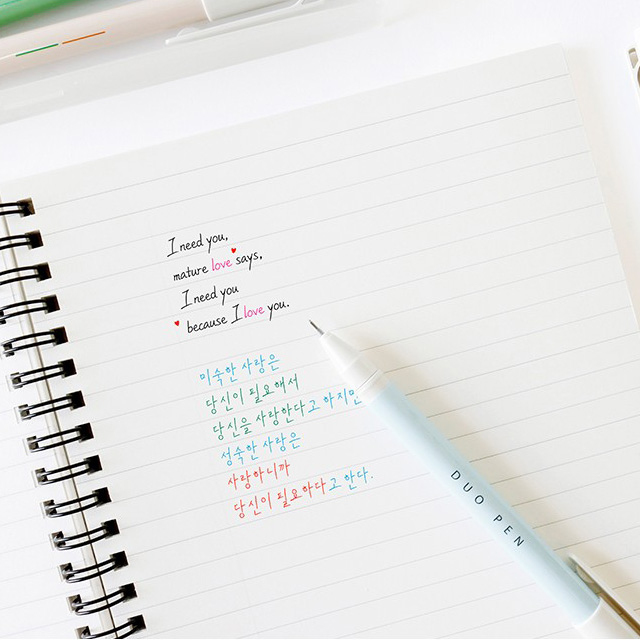 I need you,
mature love says,
I need you
because I love you.
미숙한 사랑은
당신이 필요해서
당신을 사랑한다고 하지만
성숙한 사랑은
사랑하니까
당신이 필요하다고 한다.
DUO PEN